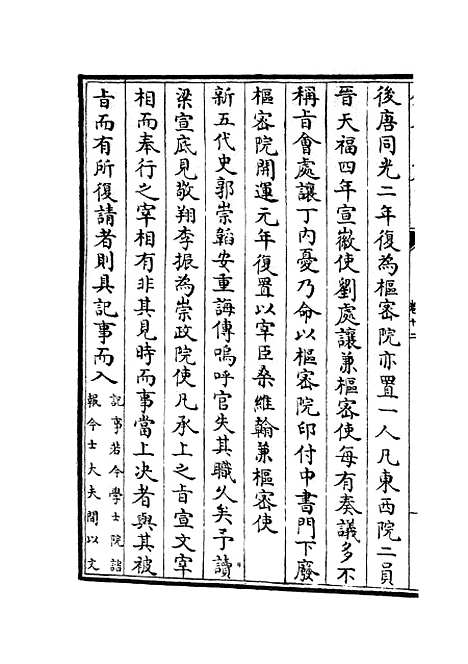 後唐同光二年復為樞密院亦置一人凡東西院二員
晉天福四年宣徽使劉處讓兼樞密使每有奏議多不
稱旨會處讓丁內憂乃命以樞密院印付中書門下廢
樞密院開運元年復置以宰臣桑維翰兼樞密使
新五代史郭崇韜安重誨傳嗚呼官失其職久矣予讀
梁宣底見敬翔李振為崇政院使凡承上之旨宣文宰
相而奉行之宰相有非其見時而事當上决者與其被
旨而有所復請者則具記事而入
記事若今學士院諮
報今士大夫間以文